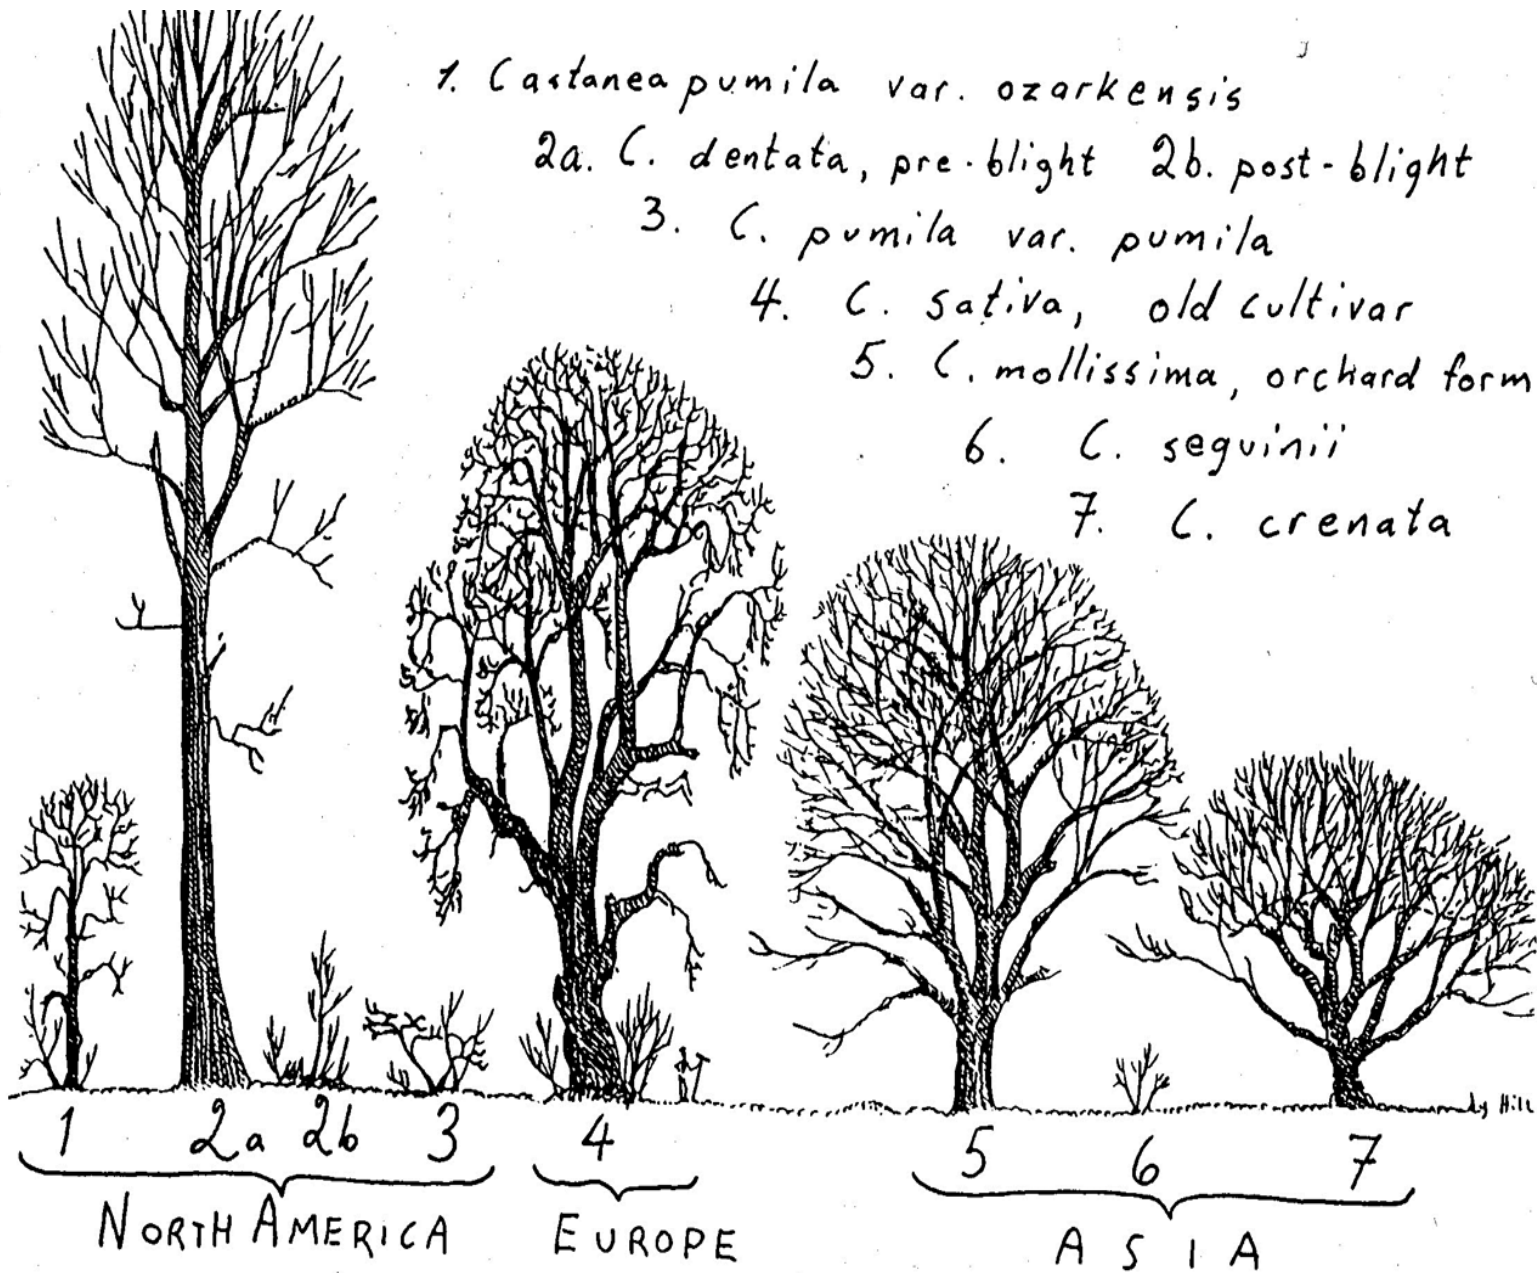 1. Castanea pumila var. ozarkensis
2a. C. dentata, pre-blight 2b. post-blight
3. C. pumila var. pumila
4. C. sativa, old cultivar
5. C. mollissima, orchard form
6. C. seguinii
7. C. crenata
by Hill
1 2a 2b 3 4 5 6 7
NORTH AMERICA EUROPE ASIA